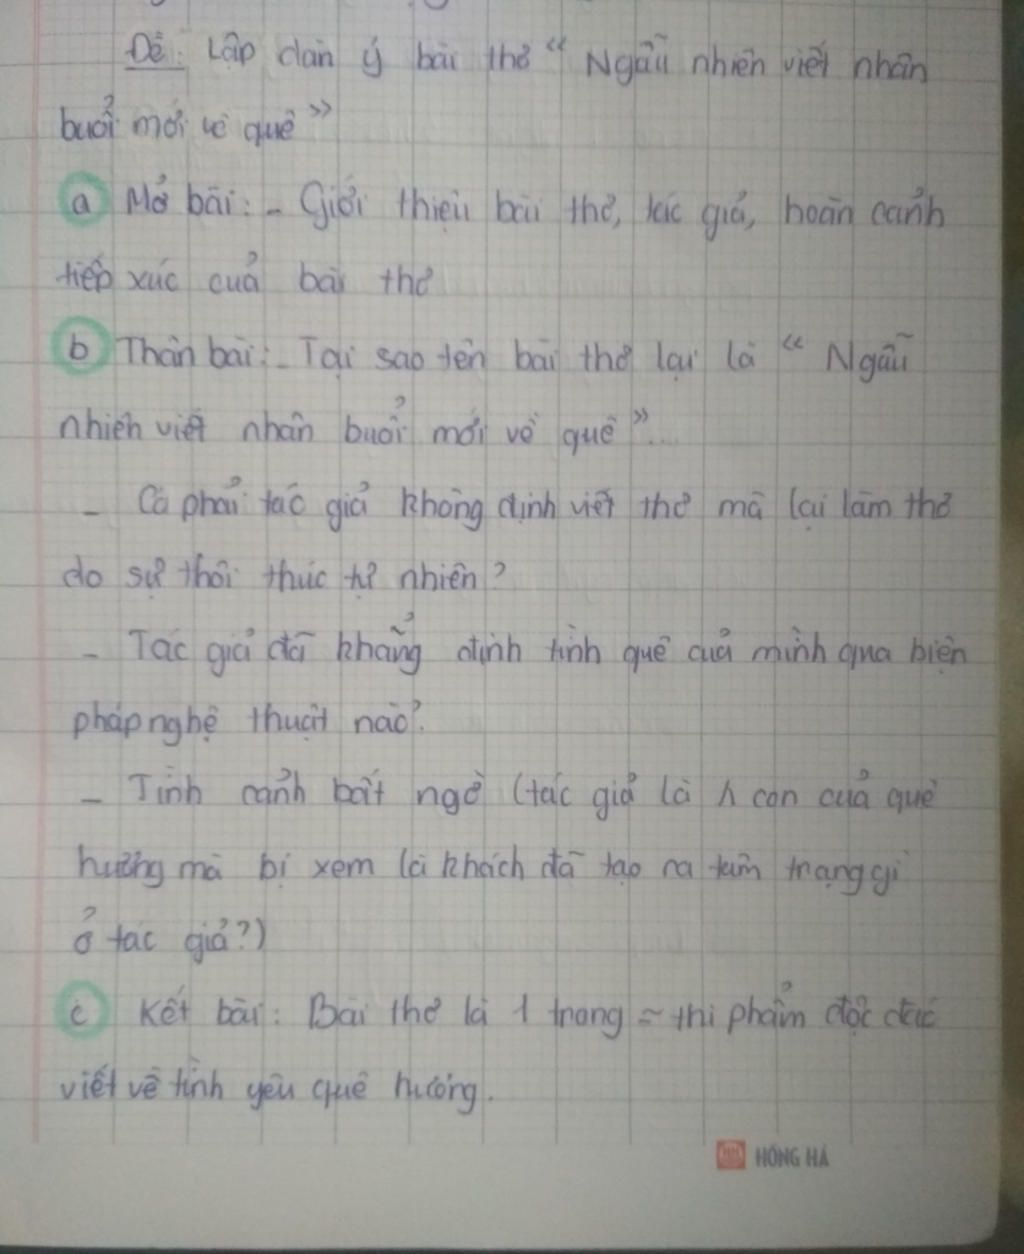 Đề: Lập dàn ý bài thơ " Ngẫu nhiên viết nhân
buổi mới về quê "
a Mở bài: - Giới thiệu bài thơ, tác giả, hoàn cảnh
tiếp xúc của bài thơ
b Thân bài: - Tại sao tên bài thơ lại là " Ngẫu
nhiên viết nhân buổi mới về quê "...
- Có phải tác giả không định viết thơ mà lại làm thơ
do sự thôi thúc tự nhiên?
- Tác giả đã khẳng định tình quê của mình qua biện
pháp nghệ thuật nào?
- Tình cảnh bất ngờ (tác giả là 1 con của quê
hương mà bị xem là khách đã tạo ra tâm trạng gì
ở tác giả?)
c Kết bài: Bài thơ là 1 trong = thi phẩm độc đáo
viết về tình yêu quê hương.
HỒNG HÀ